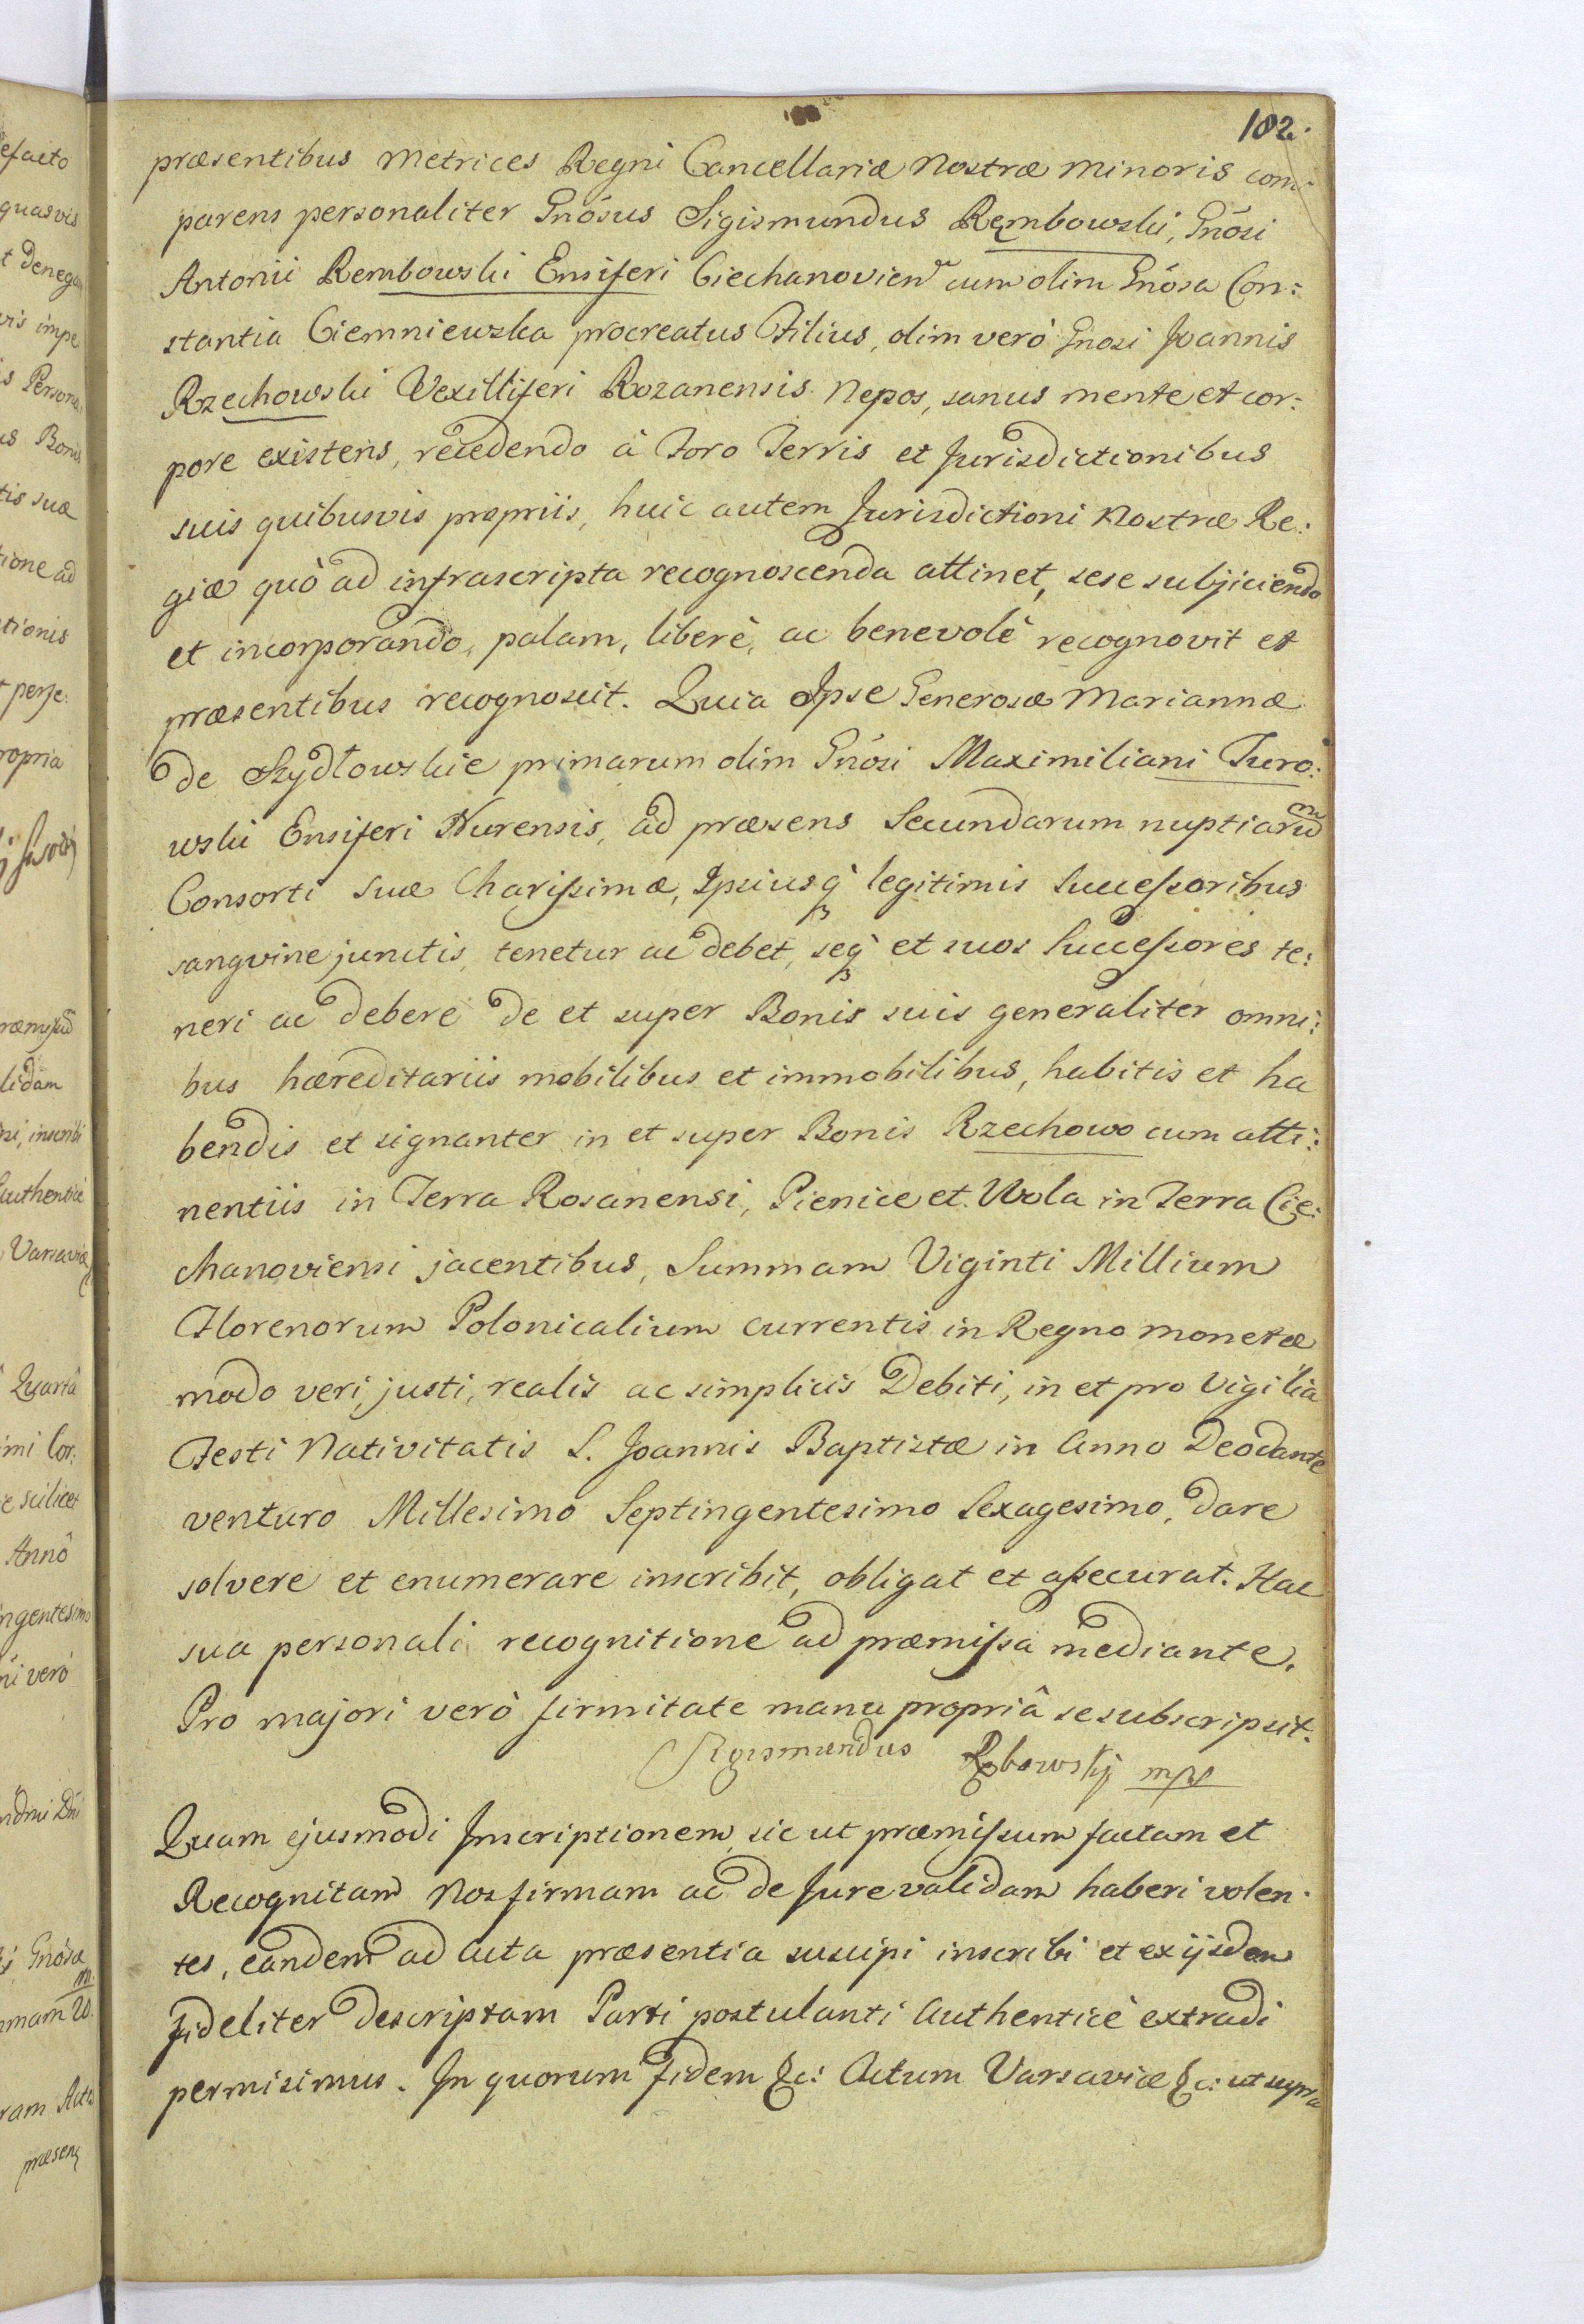 102.
præsentibus Metrices Regni Cancellariæ Nostræ Minoris com:
parens personaliter Gnósus Sigismundus Rembowski, Gnósi
Antonii Rembowski Ensiferi Ciechanovien cum olim Gnósa Con:
stantia Ciemniewska procreatus Filius, olim verò Gnosi Joannis
Rzechowski Vexilliferi Rozanensis Nepos, sanus mente et cor:
pore existens, recedendo à Foro Terris et Jurisdictionibus
suis quibusvis propriis, huic autem Jurisdictioni Nostræ Re:
giæ quò ad infrascripta recognoscenda attinet, sese subjiciendo
et incorporando, palam, liberè, ac benevolè recognovit et
præsentibus recognoscit. Quia Ipse Generosæ Mariannæ
de Szydłowskie primarum olim Gnósi Maximiliani Turo:
wski Ensiferi Nurensis, ad præsens Secundarum nuptiarum
Consorti suæ Charissimæ, Ipsiusq legitimis Successoribus
sangvine junctis, tenetur ac debet, seq et suos Successores te:
neri ac debere de et super Bonis suis generaliter omni:
bus hæreditariis mobilibus et immobilibus, habitis et ha
bendis et signanter in et super Bonis Rzechowo cum atti:
nentiis in Terra Rosanensi, Pienice et Wola in Terra Cie:
chanoviensi jacentibus, Summam Viginti Millium
Florenorum Polonicalium currentis in Regno monetæ
modo veri, justi, realis ac simplicis Debiti, in et pro Vigilia
Festi Nativitatis S. Joannis Baptistæ in Anno Deo dante
venturo Millesimo Septingentesimo Sexagesimo, dare
solvere et enumerare inscribit, obligat et assecurat. Hac
sua personali recognitione ad præmissa mediante.
Pro majori verò firmitate manu propriâ se subscripsit.
Sigismundus Rębowskj mp
Quam ejusmodi Inscriptionem, sic ut præmissum factam et
Recognitam Nos firmam ac de Jure validam haberi volen:
tes, eandem ad Acta præsentia suscipi inscribi et ex ijsdem
fideliter descriptam Parti postulanti Authenticè extradi
permisimus. In quorum fidem &c: Actum Varsaviæ &c: ut supra